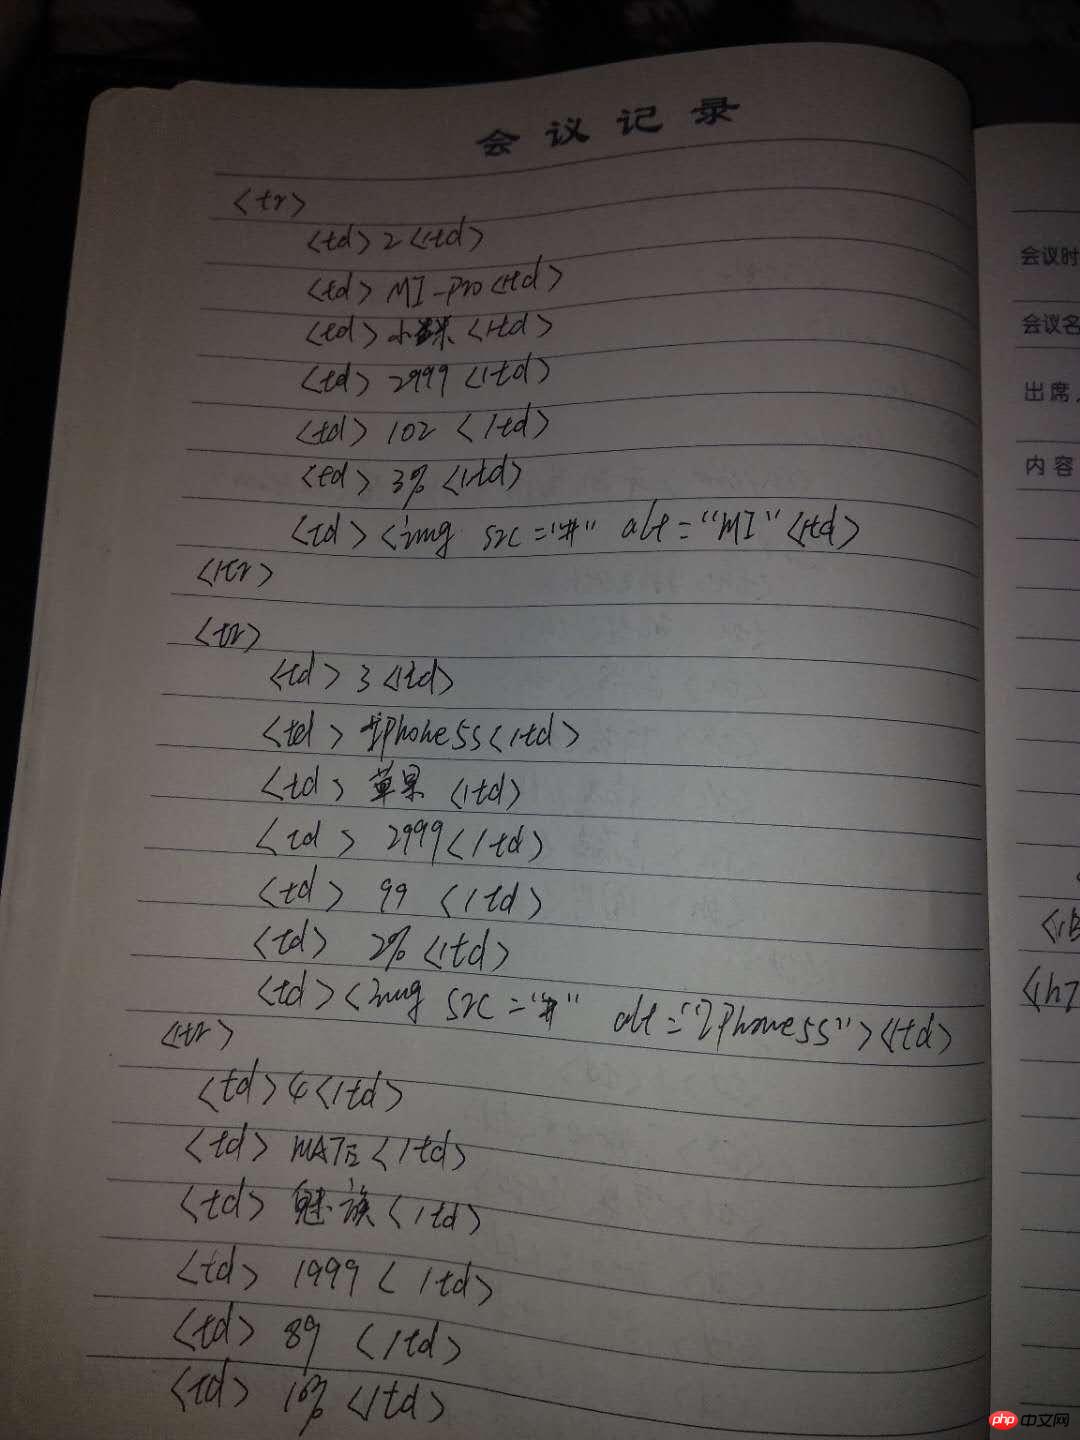 会议记录
<tr>
<td>2</td>
<td>MI-Pro</td>
<td>小米</td>
<td>2999</td>
<td>102</td>
<td>3%</td>
<td><img src="#" alt="MI"</td>
</tr>
<tr>
<td>3</td>
<td>IPhone5s</td>
<td>苹果</td>
<td>2999</td>
<td>99</td>
<td>2%</td>
<td><img src="#" alt="IPhone5s"></td>
<tr>
<td>4</td>
<td>MATE</td>
<td>魅族</td>
<td>1999</td>
<td>89</td>
<td>10%</td>
会议时
会议名
出席
内容
php中文网